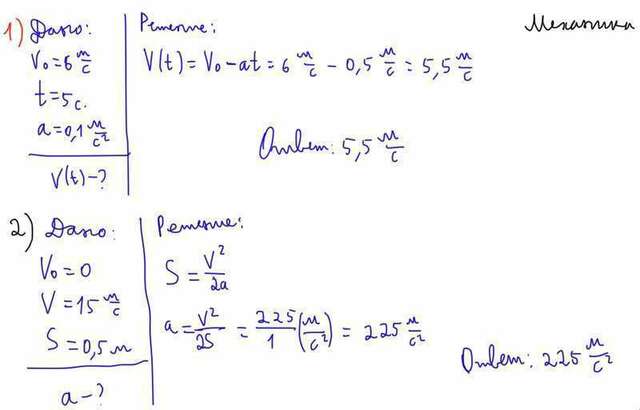 Механика
1) Дано:
V₀=6 м/с
t=5 с.
a=0,1 м/с²
V(t)-?
Решение:
V(t) = V₀-at = 6 м/с - 0,5 м/с = 5,5 м/с
Ответ: 5,5 м/с
2) Дано:
V₀=0
V=15 м/с
S=0,5 м
a-?
Решение:
S = V²/2a
a = V²/2S = 225/1 (м/с²) = 225 м/с²
Ответ: 225 м/с²